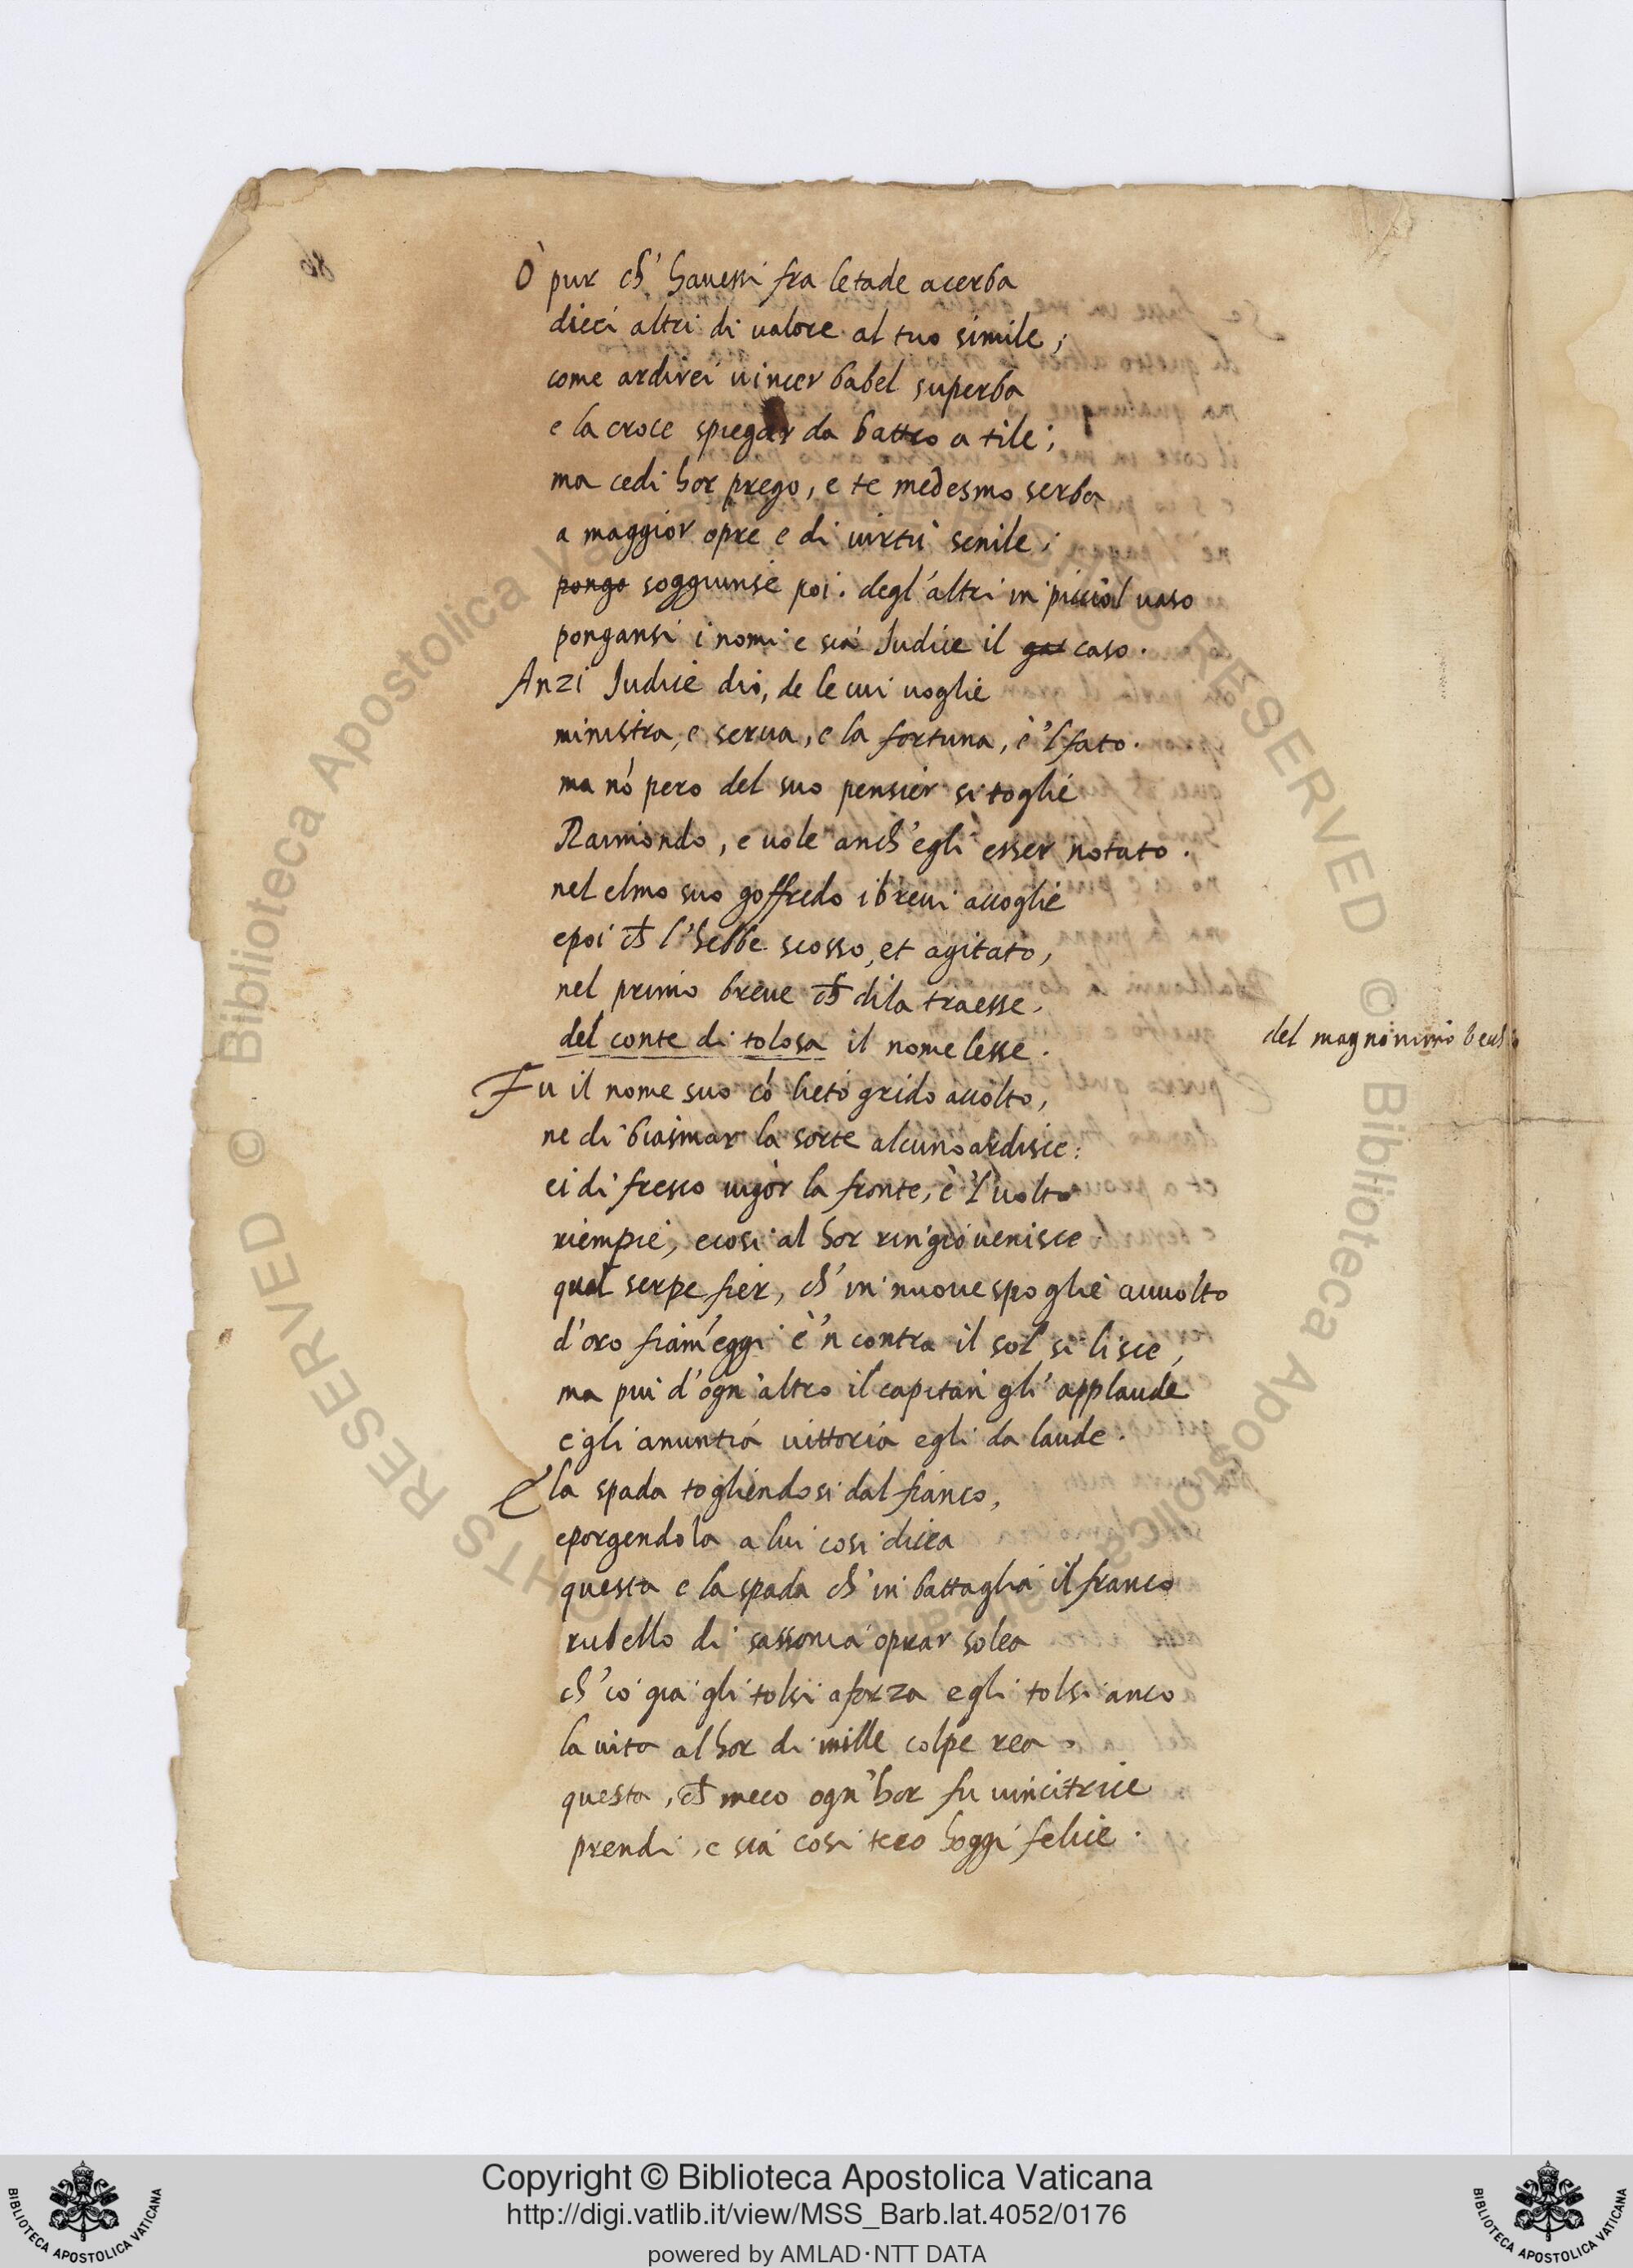 O pur ch' havessi fra letade acerba
dieci altri di ualore al tuo simile,
come ardirei uincer babel superba
e la croce spiegar da battro a tile;
ma cedi hor prego, e te medesmo serba
a maggior opre e di uirtù senile;
pongo soggiunse poi. degl'altri in picciol uaso
pongansi i nomi e sia Iudice il gat caso.
Anzi Iudice dio, de le cui uoglie
ministra, e serua, e la fortuna, e 'l fato.
ma nó pero del suo pensier si toglie
Raimondo, e uole anch'egli esser notato.
nel elmo suo goffredo i breui accoglie
epoi ch l'hebbe scosso, et agitato,
nel primo breue ch dila traesse,
del conte di tolosa il nome lesse.
del magnanimo
Fu il nome suo có lieto grido accolto,
ne di biasmar la sorte alcuno ardisce:
ei di fresco uigor la fronte, e 'l uolto
riempie, ecosi al hor ringiouenisce
qual serpe fier, ch' in nuoue spoglie auuolto
d'oro fiam'eggi e 'n contra il sol si lisce,
ma piu d'ogn'altro il capitan gli applaude
e gli anuntia uittoria egli da laude.
E la spada togliendosi dal fianco,
eporgendola a lui cosi dicea
questa e la spada ch' in battaglia il franco
rubello di sassonia oprar solea
ch' io gia gli tolsi a forza e gli tolsi anco
la uita al hor di mille colpe rea.
questa, ch meco ogn'hor fu uincitrice
prendi, e sia cosi teco hoggi felice.
Copyright © Biblioteca Apostolica Vaticana
http://digi.vatlib.it/view/MSS_Barb.lat.4052/0176
powered by AMLAD·NTT DATA
BIBLIOTECA APOSTOLICA VATICANA
BIBLIOTECA APOSTOLICA VATICANA